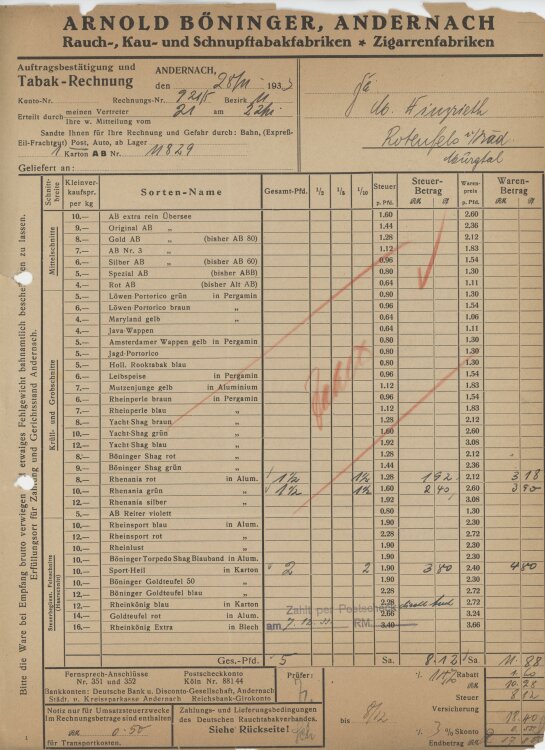 ARNOLD BÖNINGER, ANDERNACH
Rauch-, Kau- und Schnupftabakfabriken * Zigarrenfabriken
Auftragsbestätigung und
Tabak-Rechnung
ANDERNACH,
den 193
Konto-Nr. Rechnungs-Nr. 9215 Bezirk 11
Erteilt durch meinen Vertreter 21 am
Ihre w. Mitteilung vom
Sandte Ihnen für Ihre Rechnung und Gefahr durch: Bahn, (Expreß-
Eil-Frachtgut) Post, Auto, ab Lager
1 Karton AB Nr. 11829
Geliefert an:
Rotenfels
Murgtal
Schnittbreite Kleinverkaufspr. per kg Sorten-Name Gesamt-Pfd. 1/2 1/5 1/10 Steuer p. Pfd. Steuer-Betrag Warenpreis p. Pfd. Waren-Betrag
Mittelschnitte
10.— AB extra rein Übersee 1.60 2.60
9.— Original AB „ 1.44 2.36
8.— Gold AB „ (bisher AB 80) 1.28 2.12
7.— AB Nr. 3 „ 1.12 1.83
6.— Silber AB „ (bisher AB 60) 0.96 1.54
5.— Spezial AB (bisher ABB) 0.80 1.30
4.— Rot AB (bisher Alt AB) 0.64 1.06
5.— Löwen-Portorico grün in Pergamin 0.80 1.30
6.— Löwen-Portorico braun „ 0.96 1.54
4.— Maryland gelb „ 0.64 1.06
4.— Java-Wappen 0.64 1.11
Krüll- und Grobschnitte
5.— Amsterdamer Wappen gelb in Pergamin 0.80 1.30
5.— Jagd-Portorico 0.80 1.30
5.— Holl. Rooktabak blau 0.80 1.30
6.— Leibspeise in Pergamin 0.96 1.54
7.— Mutzenjunge gelb in Aluminium 1.12 1.83
6.— Rheinperle braun in Pergamin 0.96 1.54
7.— Rheinperle blau „ 1.12 1.83
8.— Yacht-Shag braun „ 1.28 2.12
10.— Yacht-Shag grün „ 1.60 2.60
12.— Yacht-Shag blau „ 1.92 3.08
8.— Böninger Shag rot „ 1.28 2.12
9.— Böninger Shag blau „ 1.44 2.36
8.— Rhenania rot in Alum. 1½ 1½ 1.28 1 92 2.12 3 18
10.— Rhenania grün „ 1½ 1½ 1.60 2 40 2.60 3 90
12.— Rhenania silber „ 1.92 3.08
5.— AB Reiter violett 0.80 1.30
Steuerbegünst. Feinschnitte (Haarschnitt)
10.— Rheinsport blau in Alum. 1.90 2.30
12.— Rheinsport rot „ 2.28 2.72
10.— Rheinlust „ 1.90 2.30
10.— Böninger Torpedo Shag Blauband in Alum. 1.90 2.30
10.— Sport-Heil in Karton 2 2 1.90 3 80 2.40 4 80
10.— Böninger Goldteufel 50 „ 1.90 2.30
12.— Böninger Goldteufel blau „ 2.28 2.72
12.— Rheinkönig blau in Karton 2.28 2.72
14.— Goldteufel rot in Alum. 2.66 3.24
16.— Rheinkönig Extra in Blech 3.40 3.66
Zahlt per Postscheck
am 7. 12. 33 RM.
Ges.-Pfd. 5 Sa. 8.12 Sa 11.88
Fernsprech-Anschlüsse
Nr. 351 und 352
Postscheckkonto
Köln Nr. 88144
Bankkonten: Deutsche Bank u. Disconto-Gesellschaft, Andernach
Städt. u. Kreissparkasse Andernach Reichsbank-Girokonto
Prüfer:
% Rabatt
10.28
Steuer 8.12
Versicherung
18.40
% Skonto 0.55
Endbetrag
bis 8/12
Notiz nur für Umsatzsteuerzwecke
Im Rechnungsbetrage sind enthalten
RM 0.50
für Transportkosten.
Zahlungs- und Lieferungsbedingungen
des Deutschen Rauchtabakverbandes.
Siehe Rückseite!
Bitte die Ware bei Empfang brutto verwiegen und etwaiges Fehlgewicht bahnamtlich bescheinigen zu lassen.
Erfüllungsort für Zahlung und Gerichtsstand Andernach.